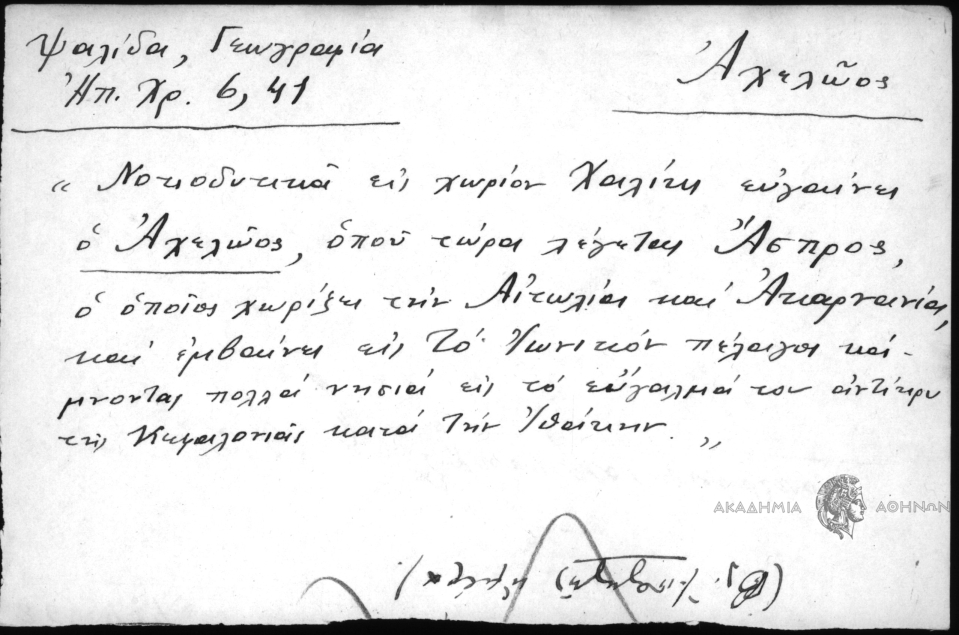 Ψαλίδα, Γεωγραφία
Ἠπ. Χρ. 6, 41
Ἀχελῶος
« Νοτιοδυτικὰ εἰς χωρίον Χαλίκι εὐγαίνει
ὁ Ἀχελῶος, ὁποῦ τώρα λέγεται Ἄσπρος,
ὁ ὁποῖος χωρίζει τὴν Αἰτωλίαν καὶ Ἀκαρνανίαν,
καὶ ἐμβαίνει εἰς τὸ Ἰωνικὸν πέλαγος κά-
μνοντας πολλὰ νησιὰ εἰς τὸ εὔγαλμά του ἀντίκρυ
τῆς Κεφαλονιᾶς κατὰ τὴν Ἰθάκην. »
ΑΚΑΔΗΜΙΑ ΑΘΗΝΩΝ